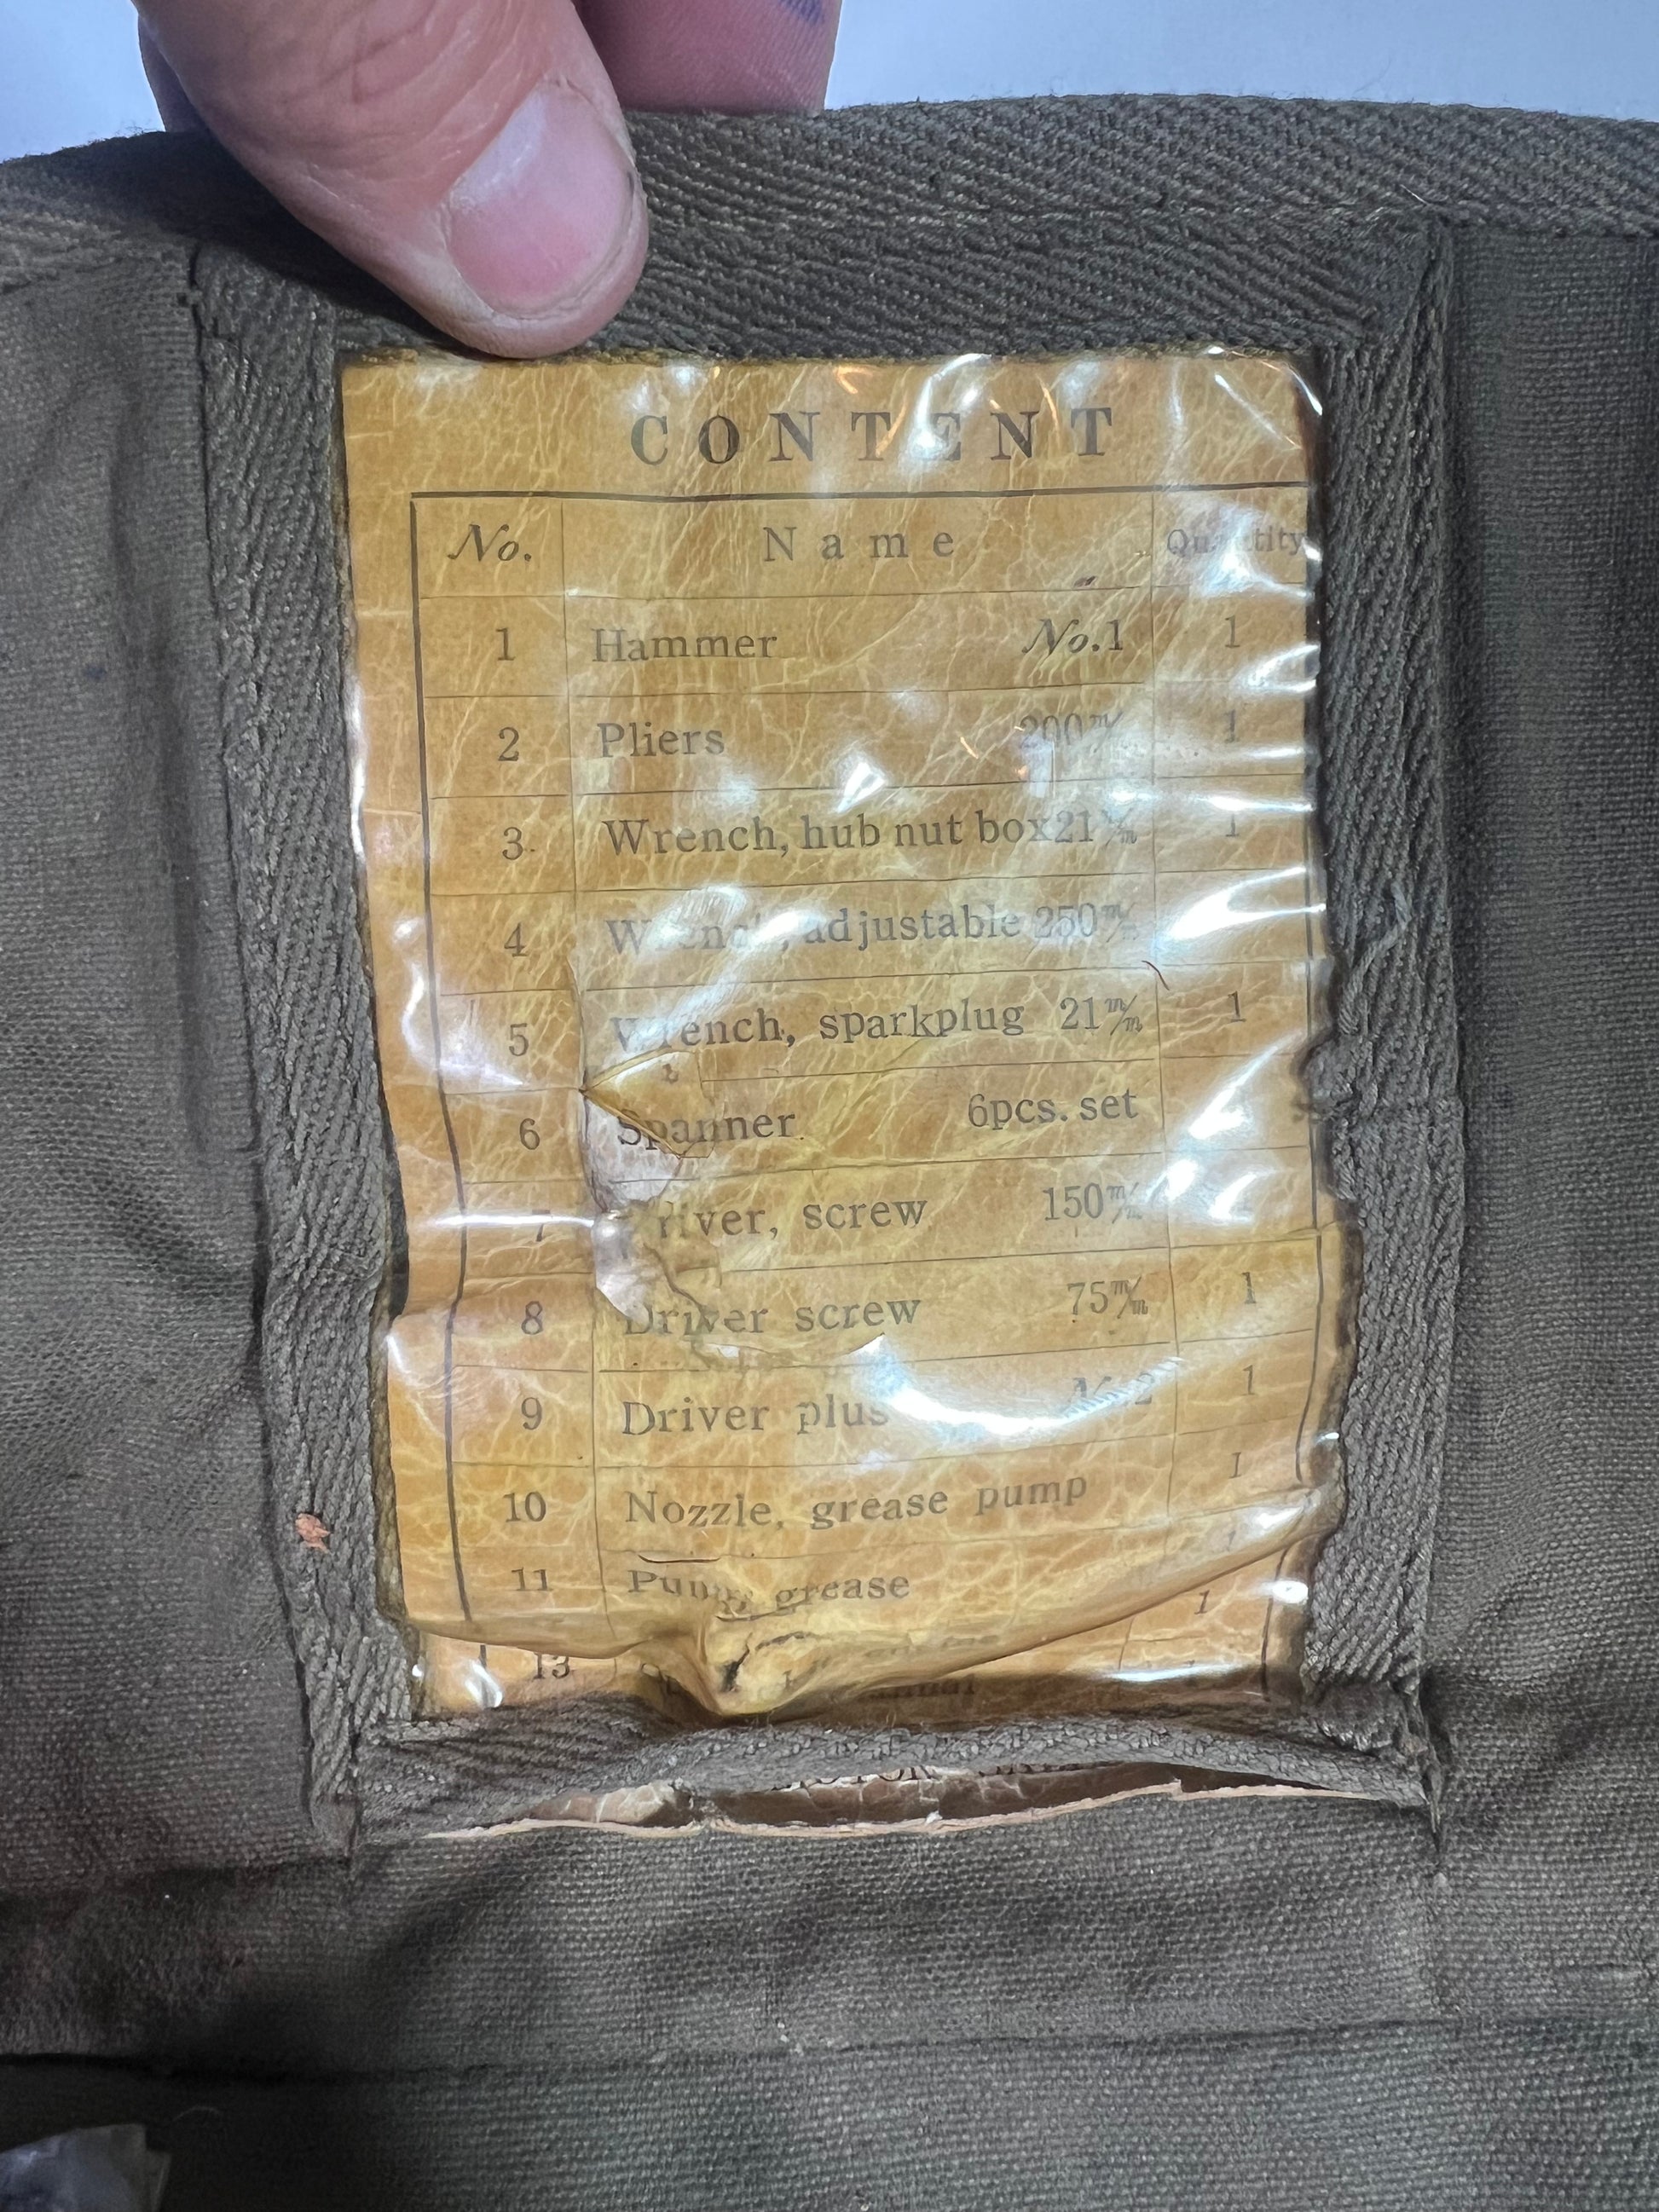 CONTENT
No. Name Quantity
1 Hammer No.1 1
2 Pliers 200 m/m 1
3 Wrench, hub nut box 21 m/m 1
4 Wrench, adjustable 250 m/m
5 Wrench, sparkplug 21 m/m 1
6 Spanner 6pcs. set
7 Driver, screw 150 m/m
8 Driver screw 75 m/m 1
9 Driver plus No.2 1
10 Nozzle, grease pump 1
11 Pump, grease 1
1
13